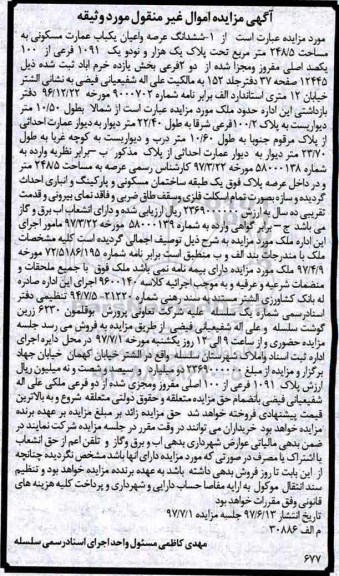 آگهی مزایده اموال غیر منقول مورد وثیقه
مورد مزایده عبارت است از ۱-ششدانگ عرصه واعیان یکباب عمارت مسکونی به
مساحت ۲۴۸/۵ متر مربع تحت پلاک یک هزار و نودو یک ۱۰۹۱ فرعی از ۱۰۰
یکصد اصلی مفروز ومجزا شده از دو ۲فرعی بخش یازده خرم آباد ثبت شده ذیل
۱۲۴۴۵ صفحه ۳۷ دفترجلد ۱۵۲ به مالکیت علی اله شفیعیانی فیضی به نشانی الشتر
خیابان ۱۲ متری استاندارد الف برابر نامه شماره ۹۰۰۰۷۰۲ مورخه ۹۶/۱۲/۲۲ دفتر
بازداشتی این اداره حدود ملک مورد مزایده عبارت است از شمالا بطول ۱۰/۵۰ متر
دیواریست به پلاک ۱۰۰/۲فرعی شرقا به طول ۲۲/۴۰ متر دیوار به دیوار عمارت احداثی
از پلاک مرقوم جنوبا به طول ۱۰/۶۰ متر درب و دیواریست به کوچه غربا به طول
۲۳/۷۰ متر دیوار به دیوار عمارت احداثی از پلاک مذکور ب -برابر نظریه وارده به
شماره ۵۸۰۰۰۱۳۸ مورخه ۹۷/۳/۲۲ کارشناس رسمی عرصه به مساحت ۲۴۸/۵ متر
و در داخل عرصه پلاک فوق یک طبقه ساختمان مسکونی و پارکینگ و انباری احداث
گردیده و سازه بصورت تمام اسکلت فلزی وسقف طاق ضربی و فاقد نمای بیرونی و قدمت
تقریبی ده سال به ارزش ۲۳۶۹۰۰۰۰۰۰ ریال ارزیابی شده و دارای انشعاب اب برق و گاز
می باشد ج - برابر گواهی وارده به شماره ۵۸۰۰۰۱۳۹ مورخه ۹۷/۳/۲۲ مامور اجرای
این اداره ملک مورد مزایده به شرح ذیل توصیف اجمالی گردیده است کلیه مشخصات
ملک با مندرجات بند الف و ب منطبق است برابر نامه شماره ۷۲/۵۱۸۶/۱۹۵ مورخه
۹۷/۴/۹ ملک مورد مزایده دارای بیمه نامه نمی باشد ملک فوق با جمیع ملحقات و
منضمات شرعیه و عرفیه و به موجب اجرائیه کلاسه ۹۶۰۰۱۴۰ اجرای این اداره صادره
له بانک کشاورزی الشتر مستند به سند رهنی شماره ۲۱۲۲۰-۹۴/۷/۵ تنظیمی دفتر
اسنادرسمی شماره یک سلسله علیه شرکت تعاونی پرورش بوقلمون ۶۲۳۰ زرین
گوشت سلسله و علی اله شفیعیانی فیضی از طریق مزایده به فروش می رسد جلسه
مزایده حضوری و از ساعت ۹ الی ۱۲ روز یکشنبه مورخه ۹۷/۷/۱ در محل دایره اجرای
اداره ثبت اسناد واملاک شهرستان سلسله واقع در الشتر خیابان کهمان خیابان جهاد
برگزار و مزایده از مبلغ ۲۳۶۹۰۰۰۰۰۰ دو میلیارد و سیصد و شصت و نه میلیون ریال
ارزش پلاک ۱۰۹۱ فرعی از ۱۰۰ اصلی مفروز ومجزی شده از دو فرعی ملکی علی اله
شفیعیانی فیضی بانضمام حق مزایده متعلقه و حقوق دولتی متعلقه شروع و به بالاترین
قیمت پیشنهادی فروخته خواهد شد حق مزایده زائد بر مبلغ مزایده بر عهده برنده
مزایده خواهد بود خریداران می توانند در وقت مقرر در جلسه مزایده شرکت نمایند در
ضمن بدهی مالیاتی عوارض شهرداری بدهی اب و برق وگاز و تلفن اعم از حق انشعاب
یا اشتراک یا مصرف در صورتی که مورد مزایده دارای انها باشد مشخص نگردیده چنانچه
از این بابت تا روز فروش بدهی داشته باشد به عهده برنده مزایده خواهد بود و تنظیم
سند انتقال موکول به ارایه مفاصا حساب دارایی و شهرداری و پرداخت کلیه هزینه های
قانونی وفق مقررات خواهد بود
تاریخ انتشار ۹۷/۶/۱۳ جلسه مزایده ۹۷/۷/۱
م الف ۳۰۸۸۶
مهدی کاظمی مسئول واحد اجرای اسنادرسمی سلسله
۶۷۷